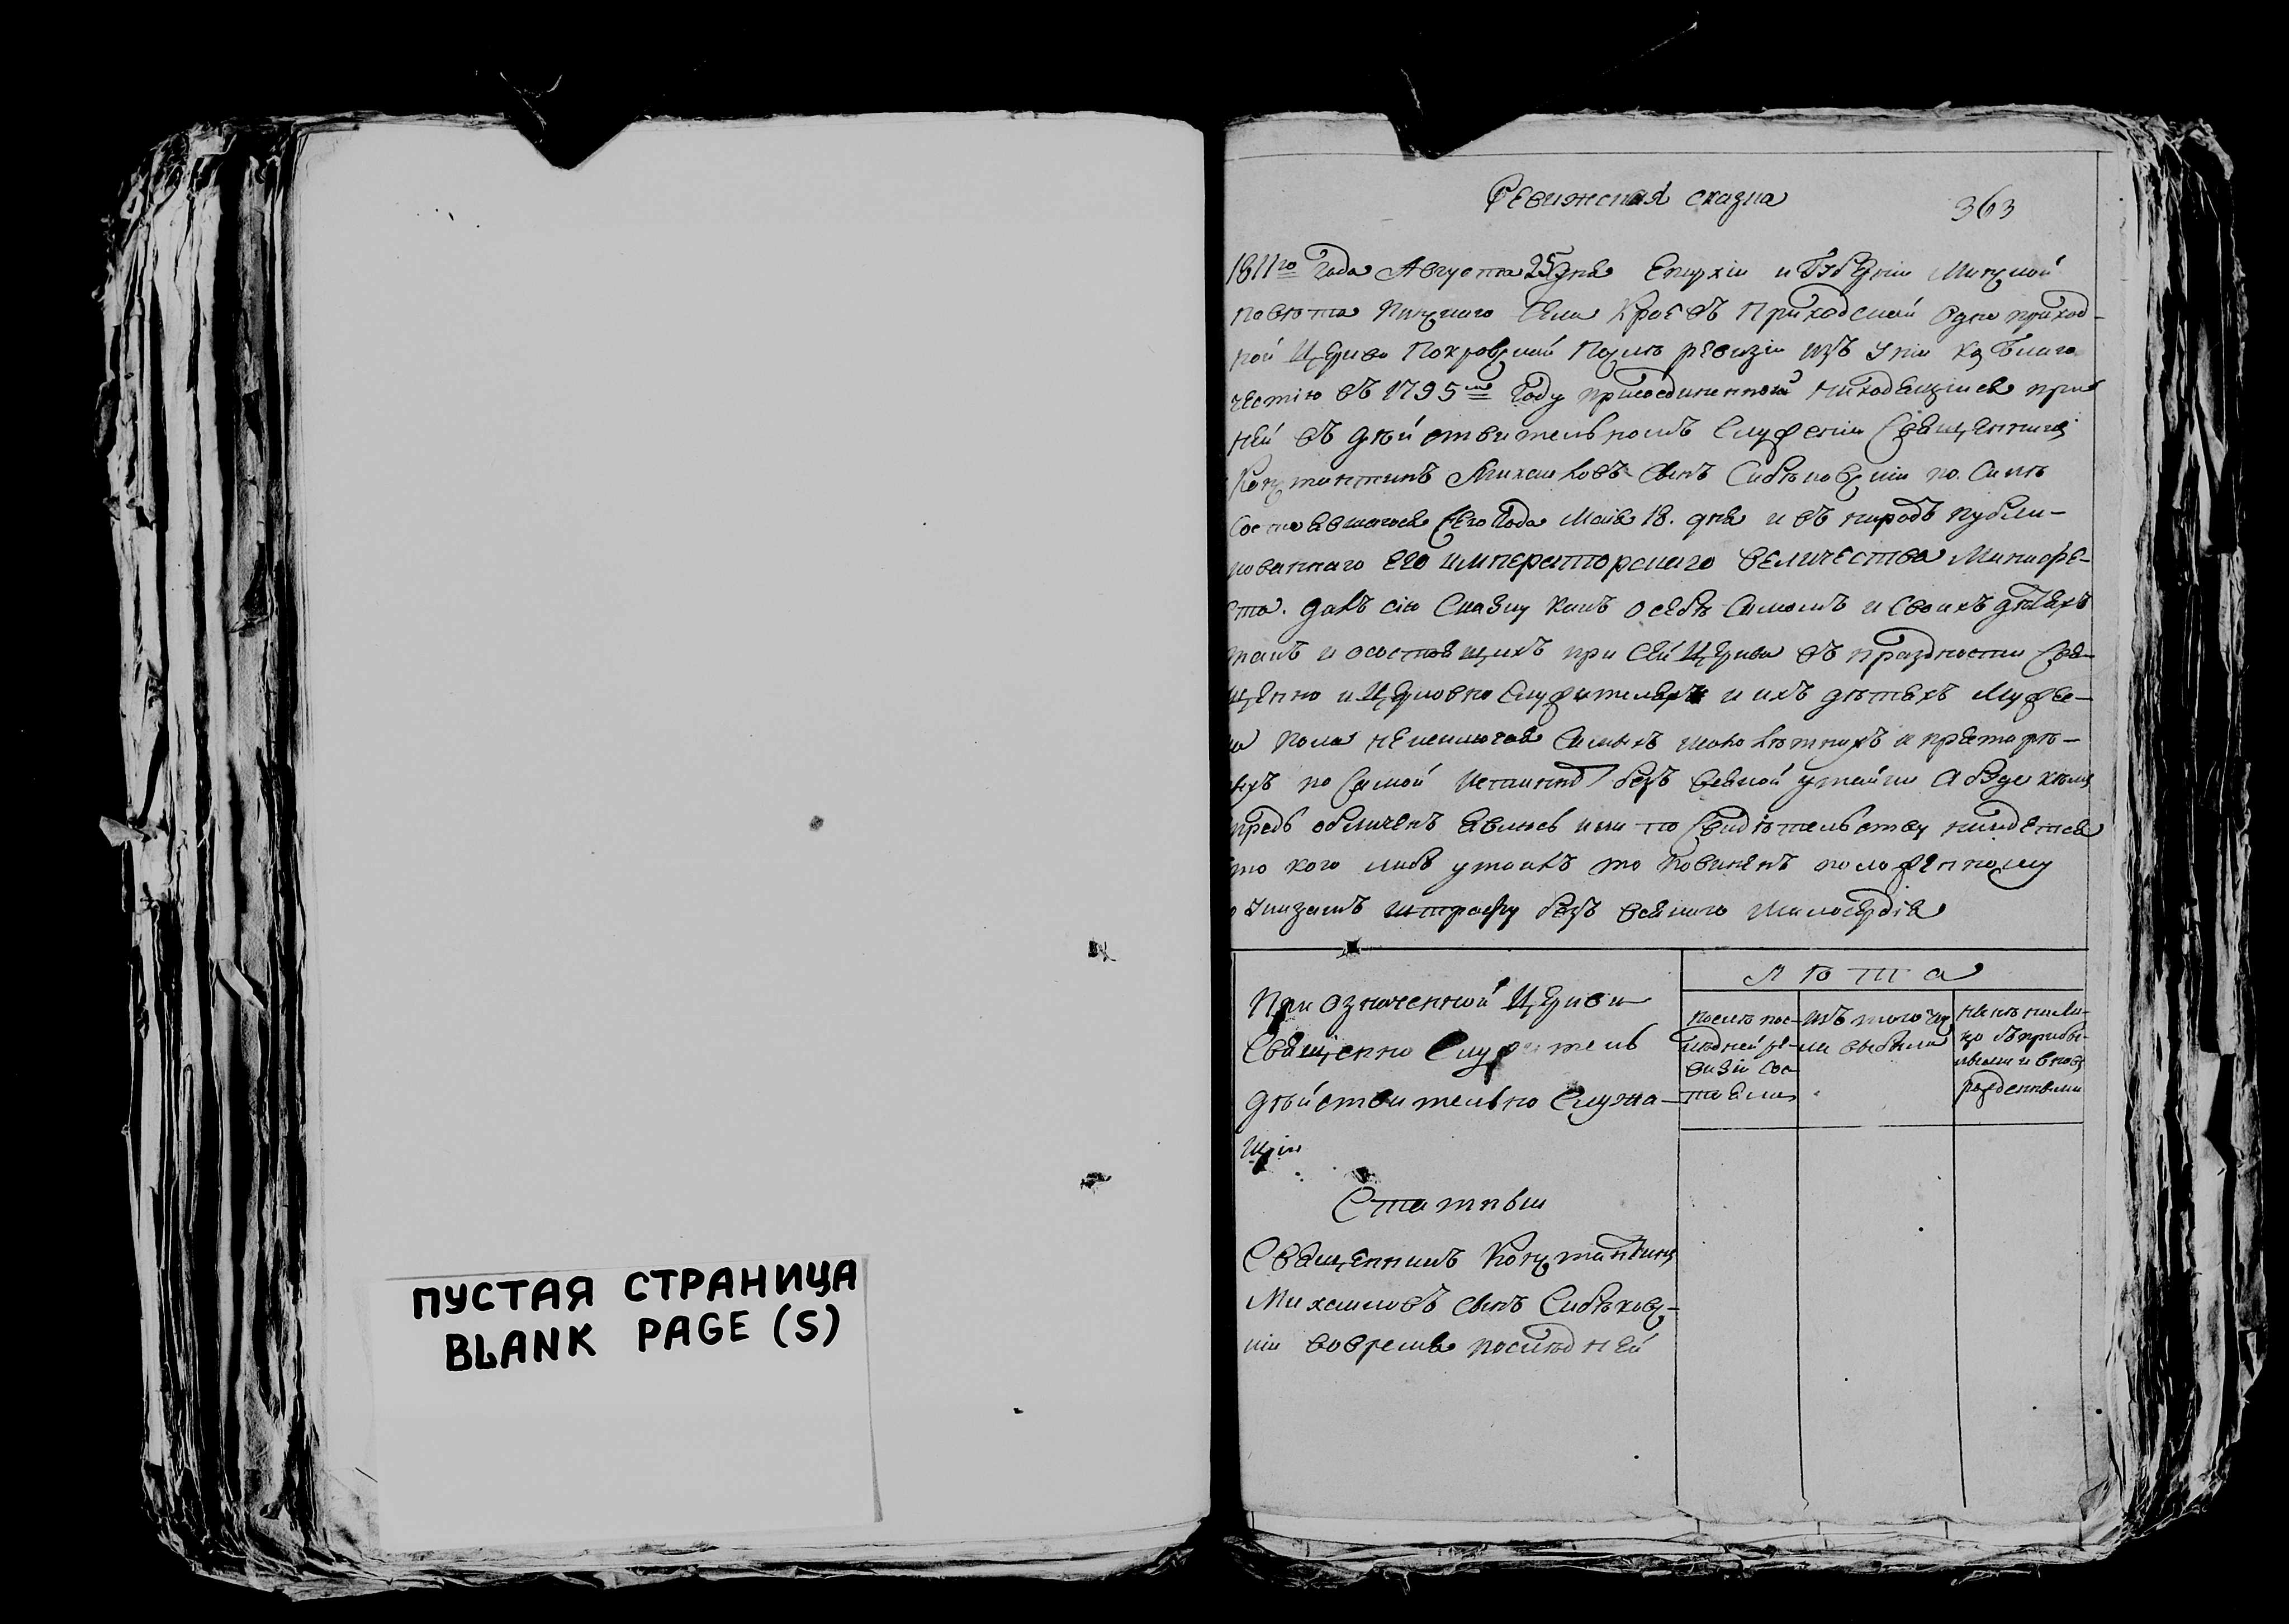 ПУСТАЯ СТРАНИЦА
BLANK PAGE (S)
Ревижская сказка
363
1811го Года Августа 25 дня Епархіи и Губерніи Минской
повѣта Пинскаго Села Кроевъ Приходской одноприход-
ной Церкви Покровской Послѣ ревизіи изъ Уніи къ благо
честію въ 1795м Году присоединенной находящійся при
ней въ дѣйствительномъ Служеніи Священникъ
Константинъ Михаиловъ Сынъ по Силѣ
Состоявшагося сего Года Маія 18. дня и въ народъ публи-
кованнаго Его Императорскаго Величества Манифе-
ста. далъ сію Сказку какъ о себѣ Самомъ и Своихъ дѣтяхъ
такъ и о состоящихъ при Сей Церкви въ праздности Свя-
щенно и Церковно Служителяхъ и ихъ дѣтехъ Мужес-
ка пола неисключая Самыхъ малолѣтныхъ и престарѣ-
лыхъ по Самой Истиннѣ безъ всякой утайки А буде кѣмъ
предь обличенъ явлюсь или по Свидѣтельству найдется
что кого либо утаилъ то повиненъ положенному
Указамъ штрафу безъ всякаго Милосердія
При означенной Церкви
Священно Служитель
дѣйствительно Служа-
щіи
Статныи
Священникъ Константинъ
Михаиловъ Сынъ
вовремя послѣдней
Лѣта
послѣ пос-
лѣдней ре-
визіи сос-
тояли
изъ того чис
ла выбыли
нынѣ на ли-
цо съ прибы-
лыми и вновь
рожденными